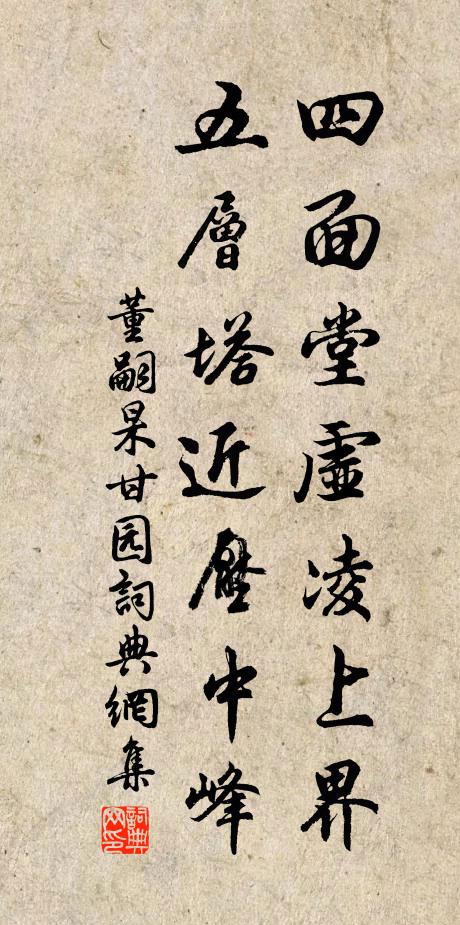 四面堂虛凌上界
五層塔近壓中峰
董嗣杲甘园詞典網集
詞典网印